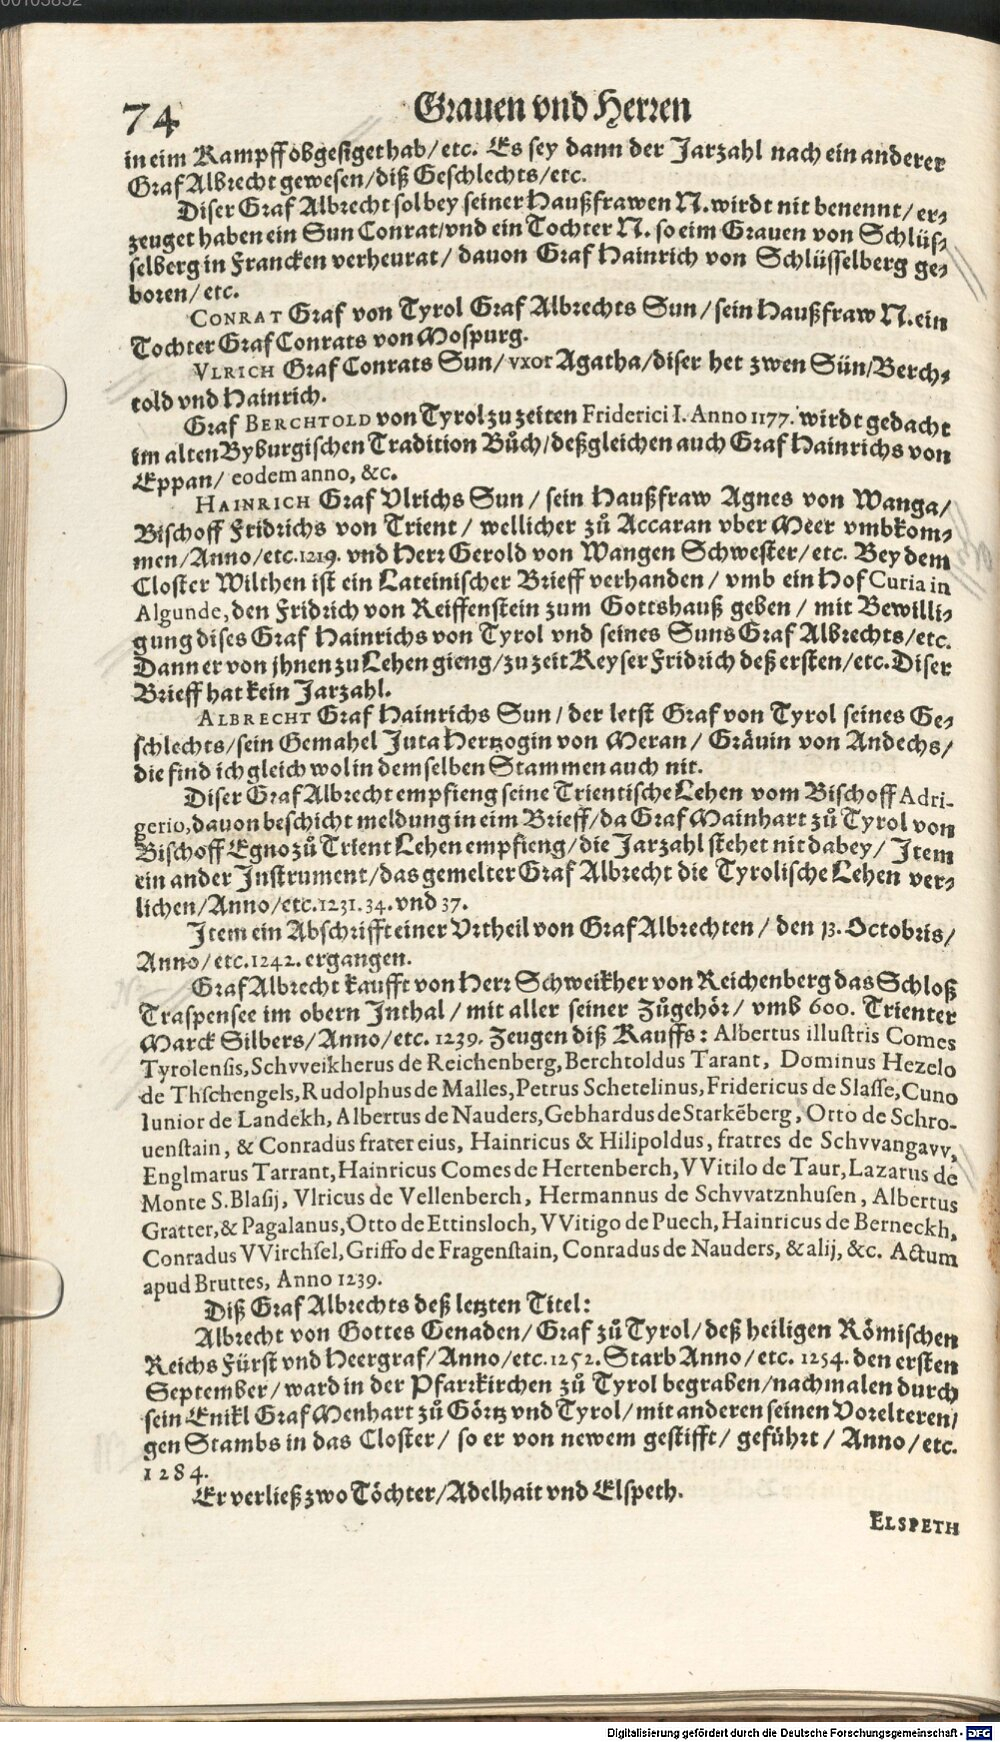 74 Grauen vnd Herren
in eim Kampff obgesiget hab/ etc. Es sey dann der Jarzahl nach ein anderer
Graf Albrecht gewesen/diß Geschlechts/etc.
Diser Graf Albrecht sol bey seiner Haußfrawen N. wirdt nit benennt/ er⸗
zeuget haben ein Sun Conrat/vnd ein Tochter N. so eim Grauen von Schlüs⸗
selberg in Francken verheurat/ dauon Graf Hainrich von Schlüsselberg ge⸗
boren/ etc.
CONRAT Graf von Tyrol Graf Albrechts Sun/ sein Haußfraw N. ein
Tochter Graf Conrats von Mospurg.
VLRICH Graf Conrats Sun/ vxor Agatha/diser het zwen Sün/Berch⸗
told vnd Hainrich.
Graf BERCHTOLD von Tyrol zu zeiten Friderici I. Anno 1177. wirdt gedacht
im alten Byburgischen Tradition Bůch/deßgleichen auch Graf Hainrichs von
Eppan/ eodem anno, &c.
HAINRICH Graf Vlrichs Sun/ sein Haußfraw Agnes von Wanga/
Bischoff Fridrichs von Trient/ wellicher zů Accaran vber Meer vmbkom⸗
men/Anno/etc.1219. vnd Herr Gerold von Wangen Schwester/ etc. Bey dem
Closter Wilthen ist ein Lateinischer Brieff verhanden/ vmb ein Hof Curia in
Algunde, den Fridrich von Reiffenstein zum Gottshauß geben/ mit Bewilli⸗
gung dises Graf Hainrichs von Tyrol vnd seines Suns Graf Albrechts/etc.
Dann er von jhnen zu Lehen gieng/zu zeit Keyser Fridrich deß ersten/etc. Diser
Brieff hat kein Jarzahl.
ALBRECHT Graf Hainrichs Sun/ der letst Graf von Tyrol seines Ge⸗
schlechts/sein Gemahel Juta Hertzogin von Meran/ Gräuin von Andechs/
die find ich gleichwol in demselben Stammen auch nit.
Diser Graf Albrecht empfieng seine Trientische Lehen vom Bischoff Adri-
gerio, dauon beschicht meldung in eim Brieff/da Graf Mainhart zů Tyrol von
Bischoff Egno zů Trient Lehen empfieng/die Jarzahl stehet nit dabey/ Item
ein ander Instrument/das gemelter Graf Albrecht die Tyrolische Lehen ver⸗
lichen/Anno/etc.1231.34.vnd 37.
Item ein Abschrifft einer Vrtheil von Graf Albrechten/ den 13. Octobris/
Anno/etc.1242. ergangen.
Graf Albrecht kaufft von Herr Schweikher von Reichenberg das Schloß
Traspensee im obern Inthal/ mit aller seiner Zůgehör/ vmb 600. Trienter
Marck Silbers/Anno/etc. 1239. Zeugen diß Kauffs: Albertus illustris Comes
Tyrolensis, Schvveikherus de Reichenberg, Berchtoldus Tarant, Dominus Hezelo
de Thschengels, Rudolphus de Malles, Petrus Schetelinus, Fridericus de Slasse, Cuno
Iunior de Landekh, Albertus de Nauders, Gebhardus de Starkēberg, Otto de Schro-
uenstain, & Conradus frater eius, Hainricus & Hilipoldus, fratres de Schvvangavv,
Englmarus Tarrant, Hainricus Comes de Hertenberch, VVitilo de Taur, Lazarus de
Monte S. Blasij, Vlricus de Vellenberch, Hermannus de Schvvatznhusen, Albertus
Gratter, & Pagalanus, Otto de Ettinsloch, VVitigo de Puech, Hainricus de Berneckh,
Conradus VVirchsel, Griffo de Fragenstain, Conradus de Nauders, & alij, &c. Actum
apud Bruttes, Anno 1239.
Diß Graf Albrechts deß letzten Titel:
Albrecht von Gottes Genaden/ Graf zů Tyrol/ deß heiligen Römischen
Reichs Fürst vnd Heergraf/Anno/etc.1252. Starb Anno/ etc. 1254. den ersten
September/ ward in der Pfarrkirchen zů Tyrol begraben/nachmalen durch
sein Enikl Graf Menhart zů Görtz vnd Tyrol/ mit anderen seinen Vorelteren/
gen Stambs in das Closter/ so er von newem gestifft/ geführt/ Anno/ etc.
1284.
Er verließ zwo Töchter/Adelhait vnd Elspeth.
ELSPETH
Digitalisierung gefördert durch die Deutsche Forschungsgemeinschaft - DFG